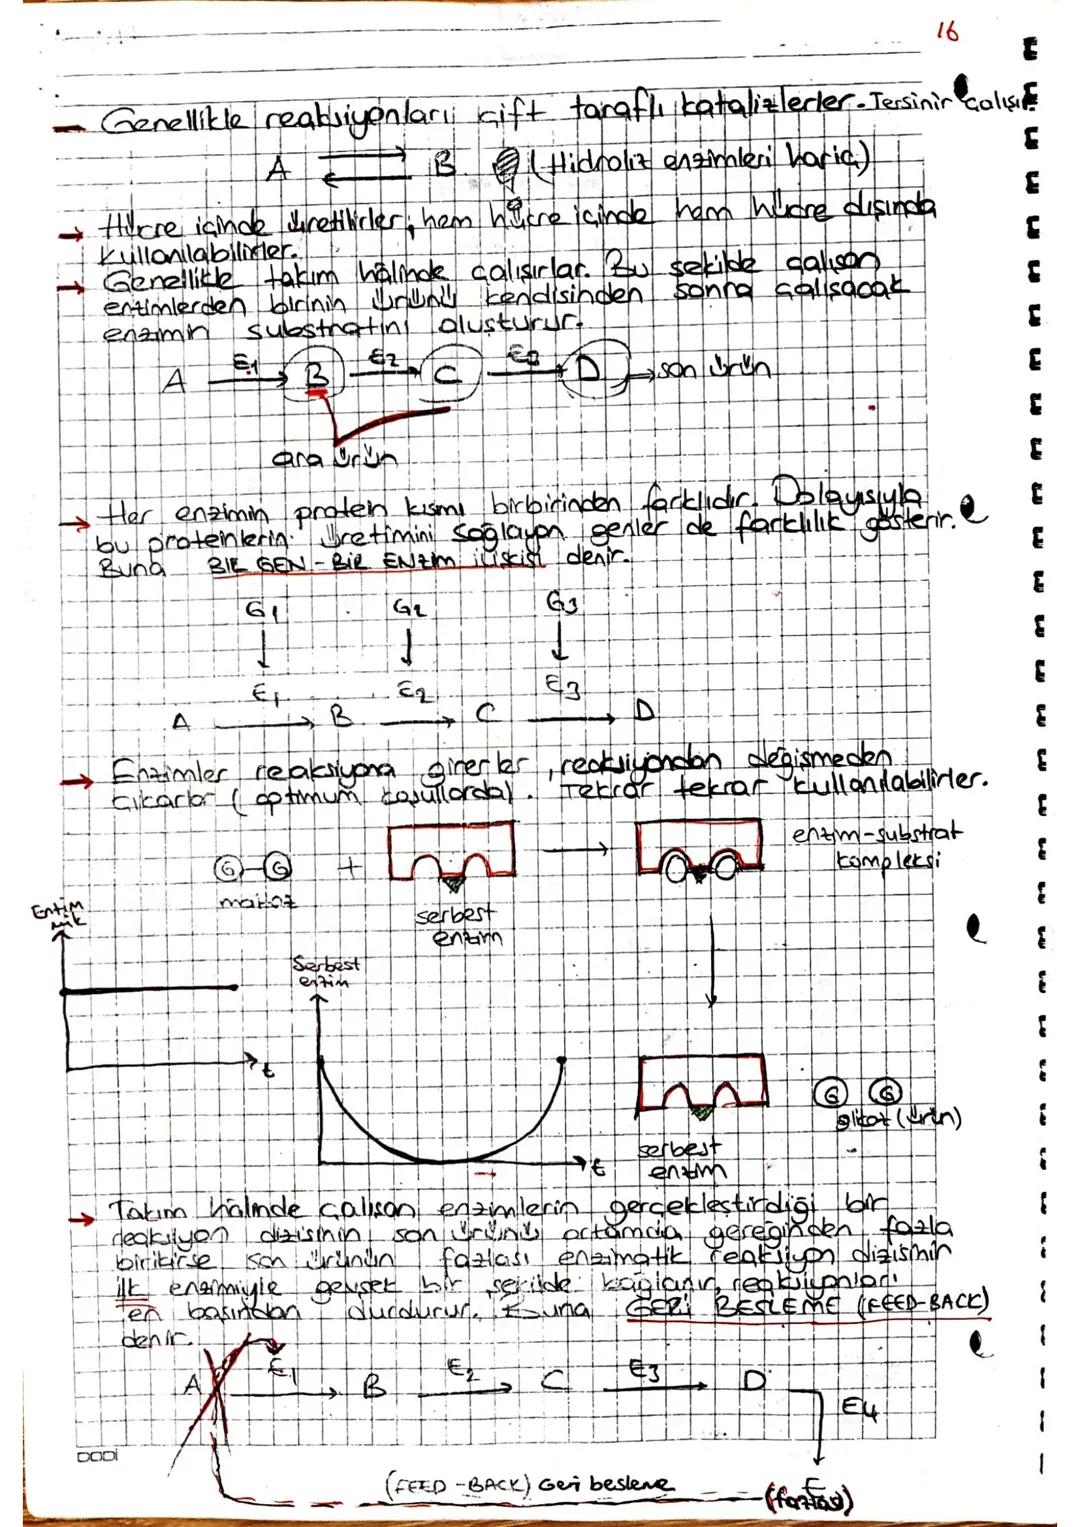 16
→ Genellikle reaksiyonları çift taraflı katalizlerler. Tersinir çalışır
A ⇌ B (Hidroliz enzimleri hariç)
→ Hücre içinde üretilirler, hem hücre içinde hem hücre dışında
kullanılabilirler.
→ Genellikle takım hâlinde çalışırlar. Bu şekilde çalışan
enzimlerden birinin ürünü kendisinden sonra çalışacak
enzimin substratını oluşturur.
E1 E2 E3
A → B → C → D → son ürün
ara ürün
→ Her enzimin protein kısmı birbirinden farklıdır. Dolayısıyla
bu proteinlerin üretimini sağlayan genler de farklılık gösterir.
Buna BİR GEN - BİR ENZİM ilişkisi denir.
G1 G2 G3
E1 E2 E3
A → B → C → D
→ Enzimler reaksiyona girerler, reaksiyondan değişmeden
çıkarlar (optimum koşullarda). Tekrar tekrar kullanılabilirler.
G-G + →
enzim-substrat
kompleksi
maltoz
serbest
enzim
Enzim
mik
t
Serbest
enzim
t
serbest
enzim
G G
glikoz (ürün)
→ Takım hâlinde çalışan enzimlerin gerçekleştirdiği bir
reaksiyon dizisinin son ürünü ortamda gereğinden fazla
birikirse son ürünün fazlası enzimatik reaksiyon dizisinin
ilk enzimiyle gevşek bir şekilde bağlanır, reaksiyonları
en başından durdurur. Buna GERİ BESLEME (FEED-BACK)
denir.
E1 E2 E3
A → B → C → D
E4
E
(FEED-BACK) Geri besleme
(fazlası)
DODI